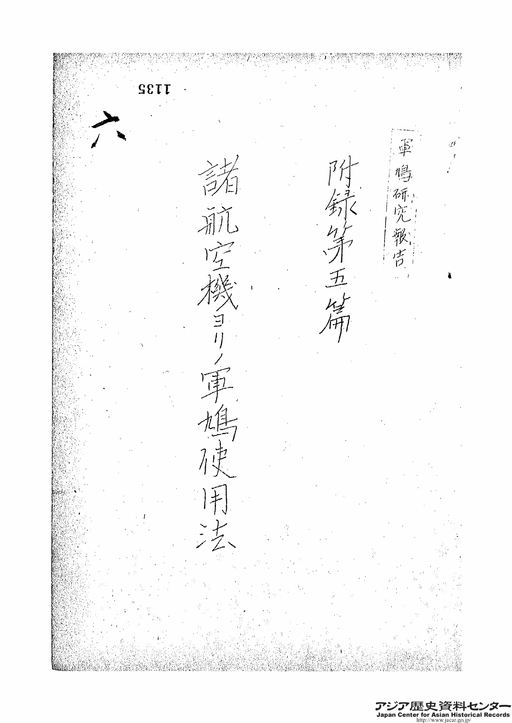 軍鳩研究報告
附録第五篇
諸航空機ヨリノ軍鳩使用法
六
1135
アジア歴史資料センター
Japan Center for Asian Historical Records
http://www.jacar.go.jp/